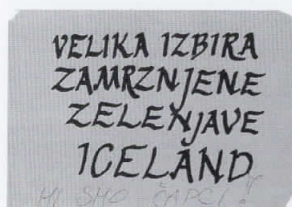 VELIKA IZBIRA
ZAMRZNJENE
ZELENJAVE
ICELAND
MI SMO ČAPCI!